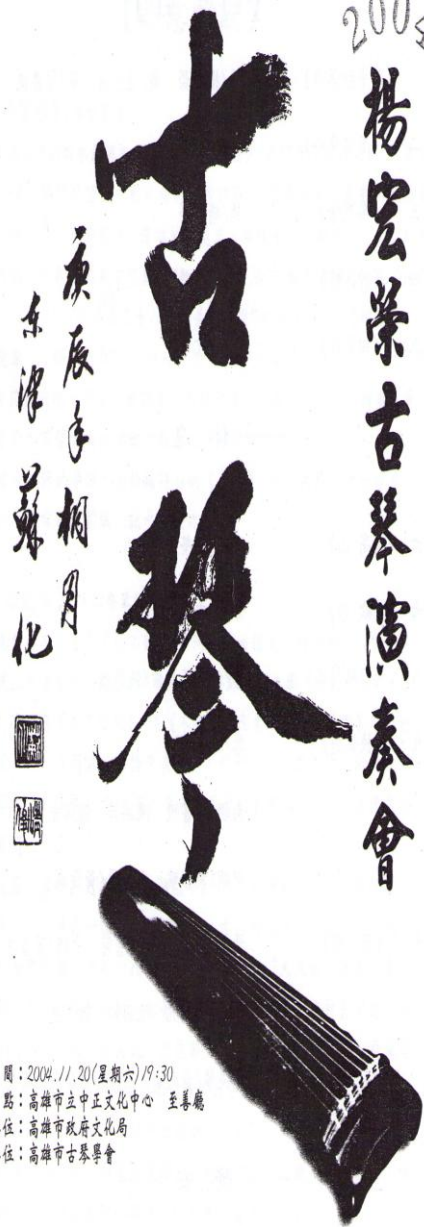 200
楊宏榮古琴演奏會
古琴
庚辰年桐月
東津蘇化
間：2004.11.20(星期六)19:30
點：高雄市立中正文化中心 至善廳
位：高雄市政府文化局
位：高雄市古琴學會